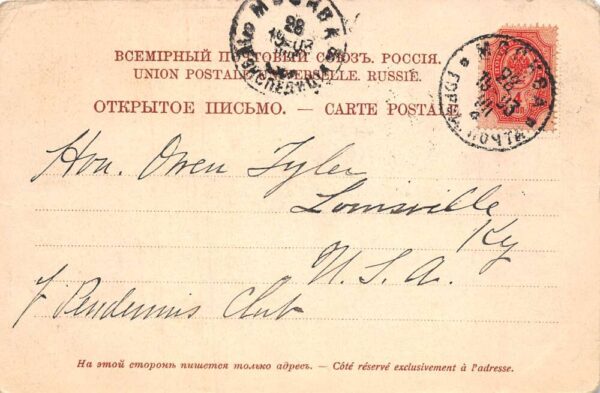 ВСЕМІРНЫЙ ПОЧТОВЫЙ СОЮЗЪ. РОССІЯ.
UNION POSTALE UNIVERSELLE. RUSSIE.
МОСКВА
28
1903
ОТКРЫТОЕ ПИСЬМО. — CARTE POSTALE
МОСКВА
28
1903
ПОЧТА
Hon. Owen Tyler
Louisville
Ky
U.S.A.
℅ Pendennis Club
На этой сторонѣ пишется только адресъ. — Côté réservé exclusivement à l'adresse.